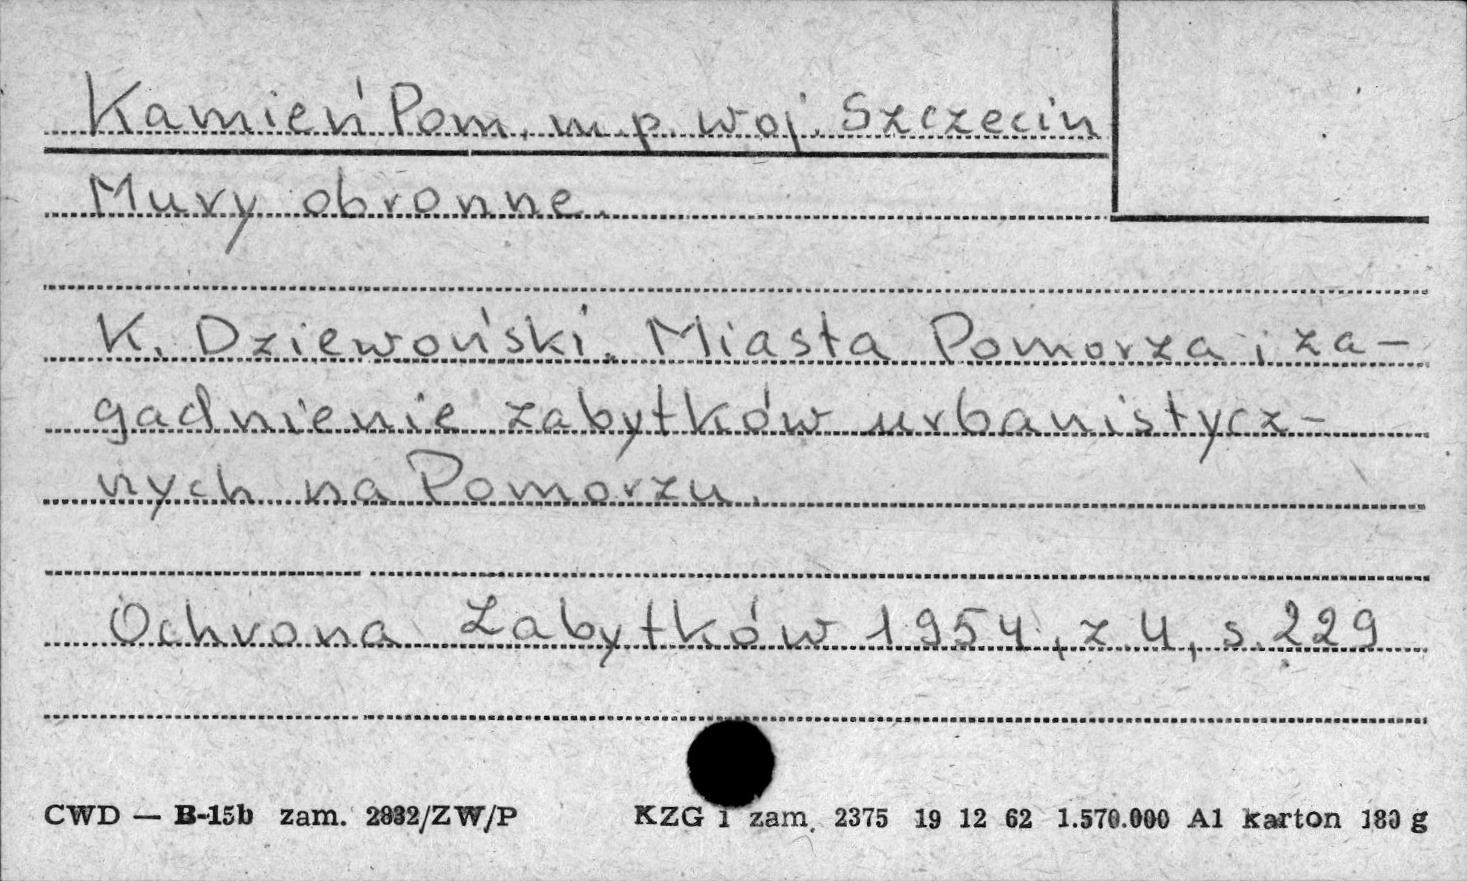 Kamień Pom. m. p. woj. Szczecin
Mury obronne.
K. Dziewoński. Miasta Pomorza i za-
gadnienie zabytków urbanistycz-
nych na Pomorzu.
Ochrona Zabytków 1954, z. 4, s. 229
CWD — B-15b zam. 2832/ZW/P KZG 1 zam. 2375 19 12 62 1.570.000 A1 karton 180 g